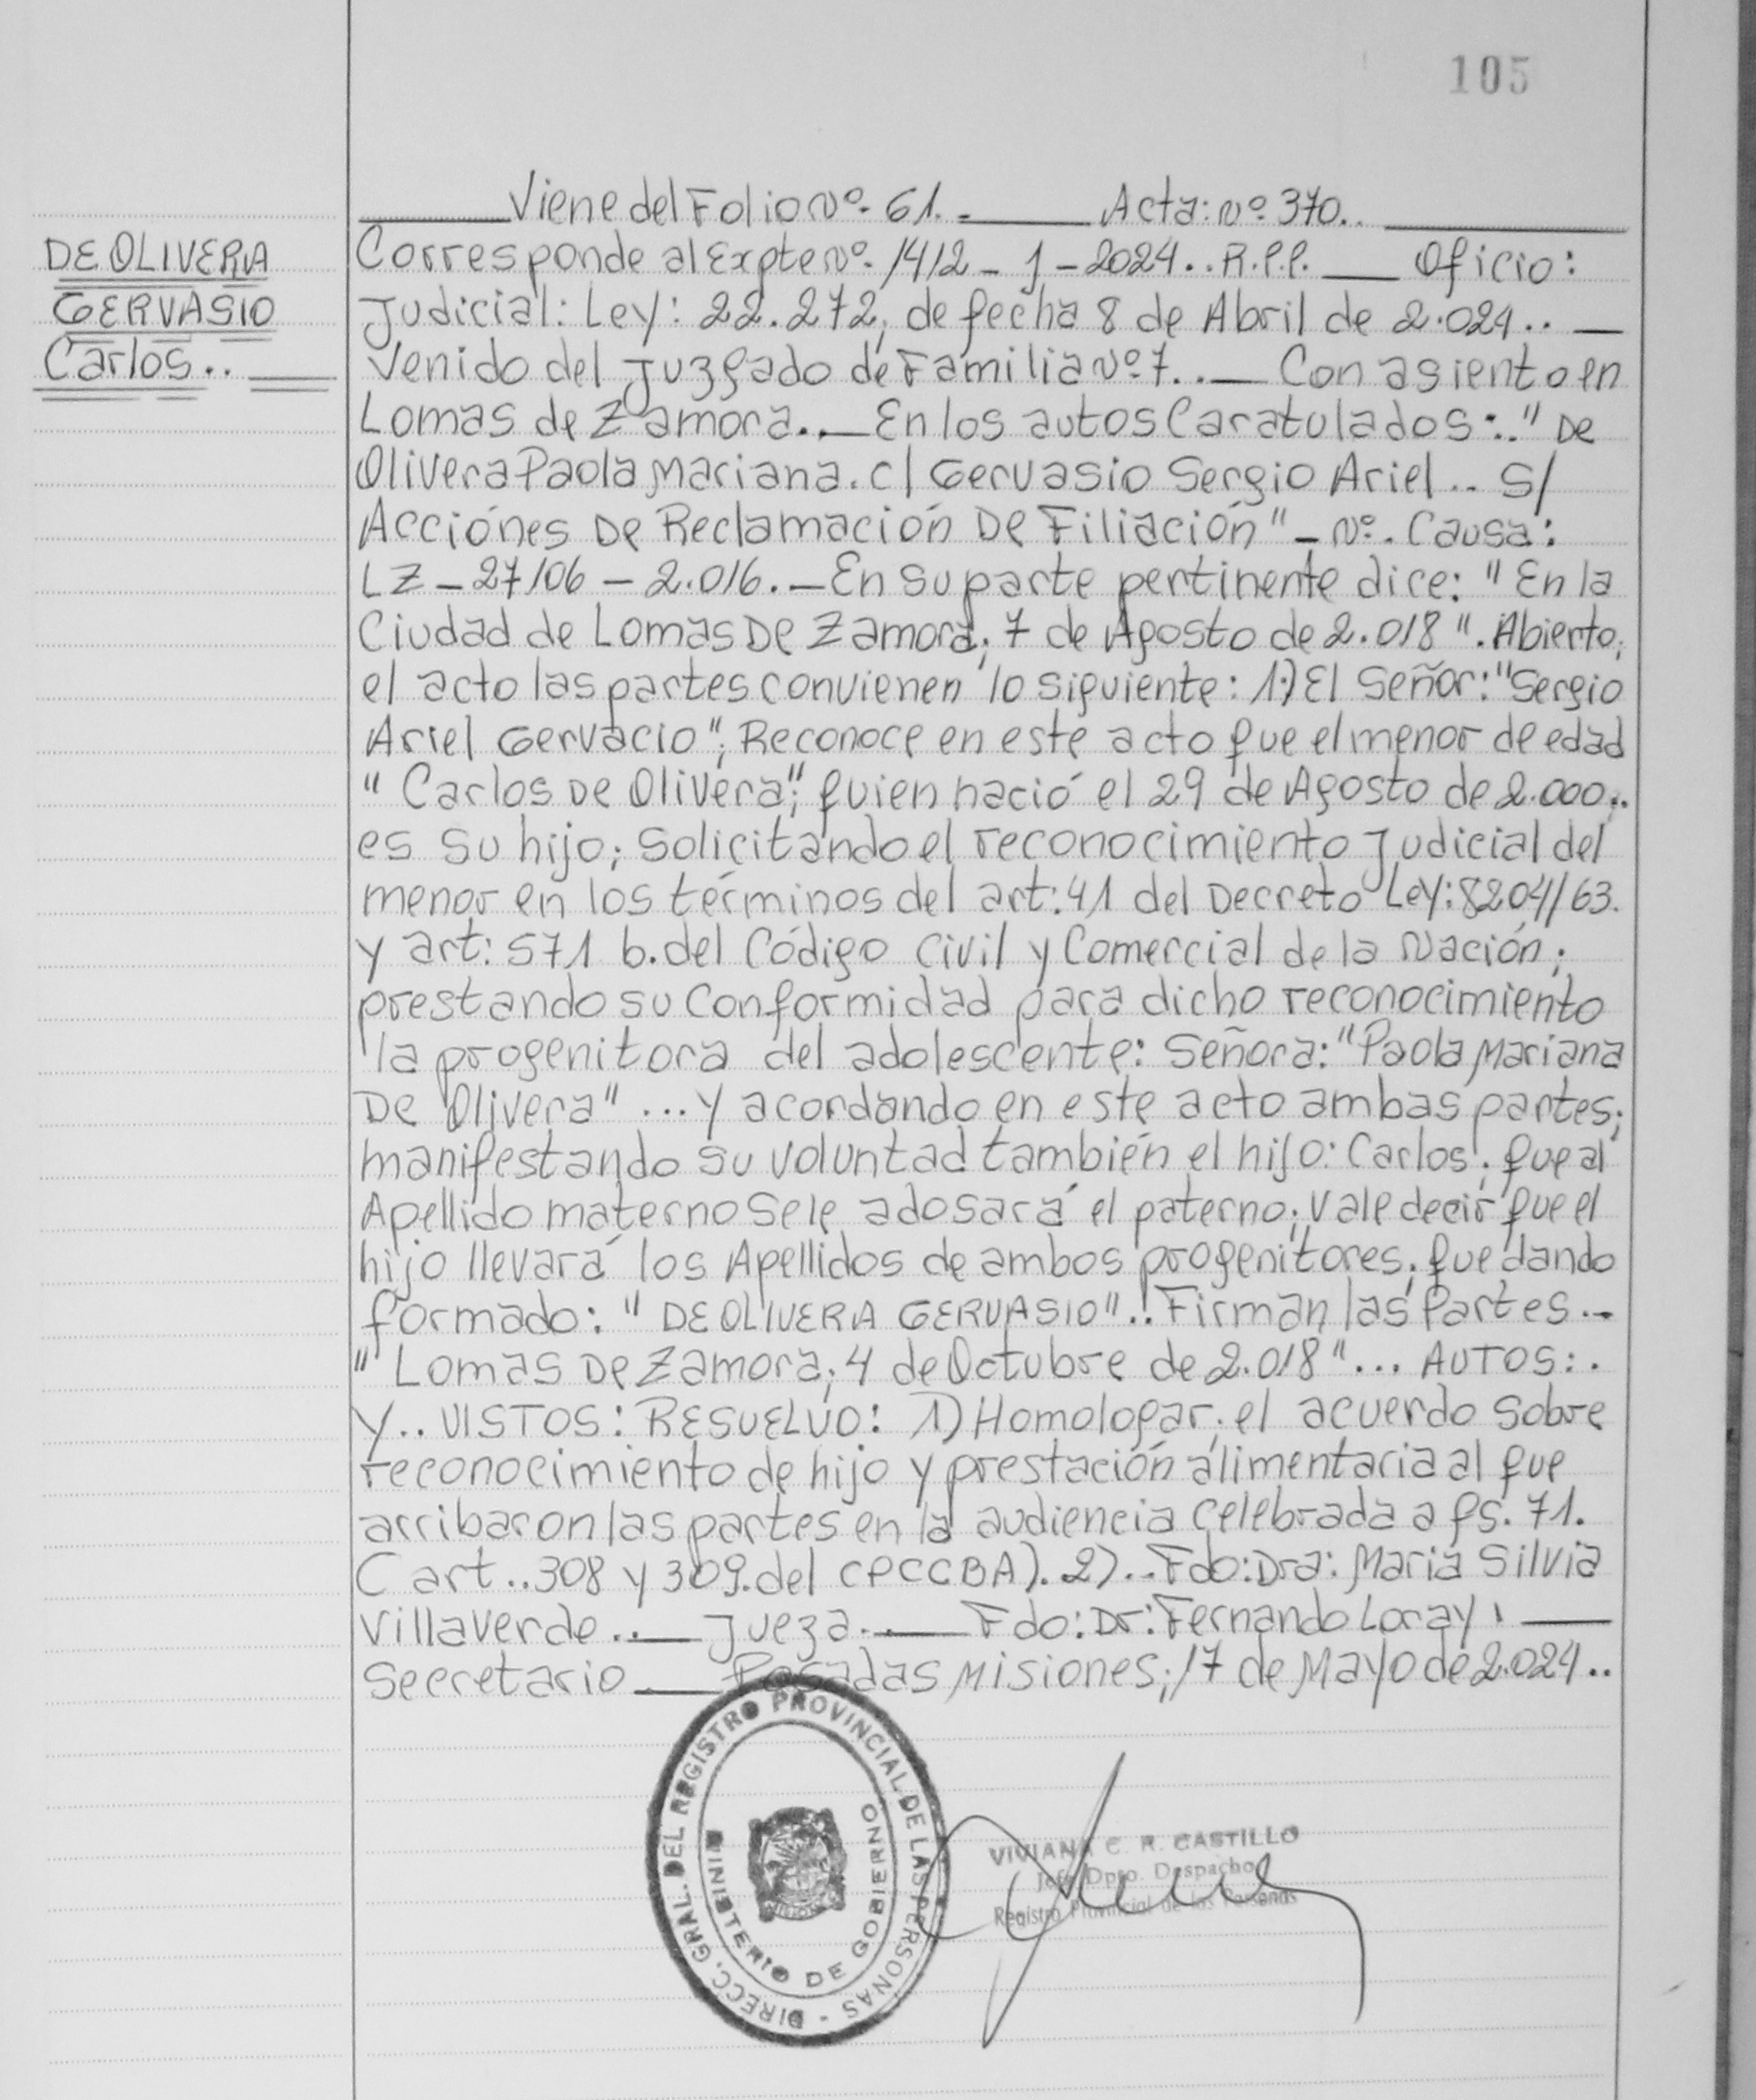 105
Viene del Folio Nº 61. Acta: Nº 370..
DE OLIVERA
GERVASIO
Carlos..
Corresponde al Expte Nº 1412 - J - 2024.. R.P.P. Oficio:
Judicial: Ley: 22.272, de fecha 8 de Abril de 2.024..
Venido del Juzgado de Familia Nº 7.. Con asiento en
Lomas de Zamora.. En los autos Caratulados:.. " De
Olivera Paola Mariana. c/ Gervasio Sergio Ariel.. S/
Acciónes De Reclamación De Filiación" - Nº. Causa:
LZ - 27106 - 2.016. - En su parte pertinente dice: " En la
Ciudad de Lomas De Zamora; 7 de Agosto de 2.018 ". Abierto;
el acto las partes convienen lo siguiente: 1:) El Señor: "Sergio
Ariel Gervacio"; Reconoce en este acto que el menor de edad
" Carlos De Olivera"; quien nació el 29 de Agosto de 2.000..
es su hijo; Solicitando el reconocimiento Judicial del
menor en los términos del art: 41 del Decreto Ley: 8204/63.
y art: 571 b. del Código Civil y Comercial de la Nación;
prestando su Conformidad para dicho reconocimiento
la progenitora del adolescente: Señora: "Paola Mariana
De Olivera" ... y acordando en este acto ambas partes;
manifestando su voluntad también el hijo: Carlos; que al
Apellido materno se le adosará el paterno; Vale decir que el
hijo llevará los Apellidos de ambos progenitores; quedando
formado: " DE OLIVERA GERVASIO".. Firman las Partes..
" Lomas De Zamora; 4 de Octubre de 2.018 "... AUTOS:.
Y.. VISTOS: RESUELVO: 1) Homologar; el acuerdo sobre
reconocimiento de hijo y prestación alimentaria al que
arribaron las partes en la audiencia celebrada a fs. 71.
C art.. 308 y 309. del CPCCBA). 2).. Fdo: Dra: Maria Silvia
Villaverde.. Jueza.. Fdo: Dr: Fernando Loray.
Secretario Posadas Misiones; 17 de Mayo de 2.024..
DIRECC. GRAL. DEL REGISTRO PROVINCIAL DE LAS PERSONAS -
MINISTERIO DE GOBIERNO
VIVIANA C. R. CASTILLO
Jefe Dpto. Despacho
Registro Provincial de las Personas